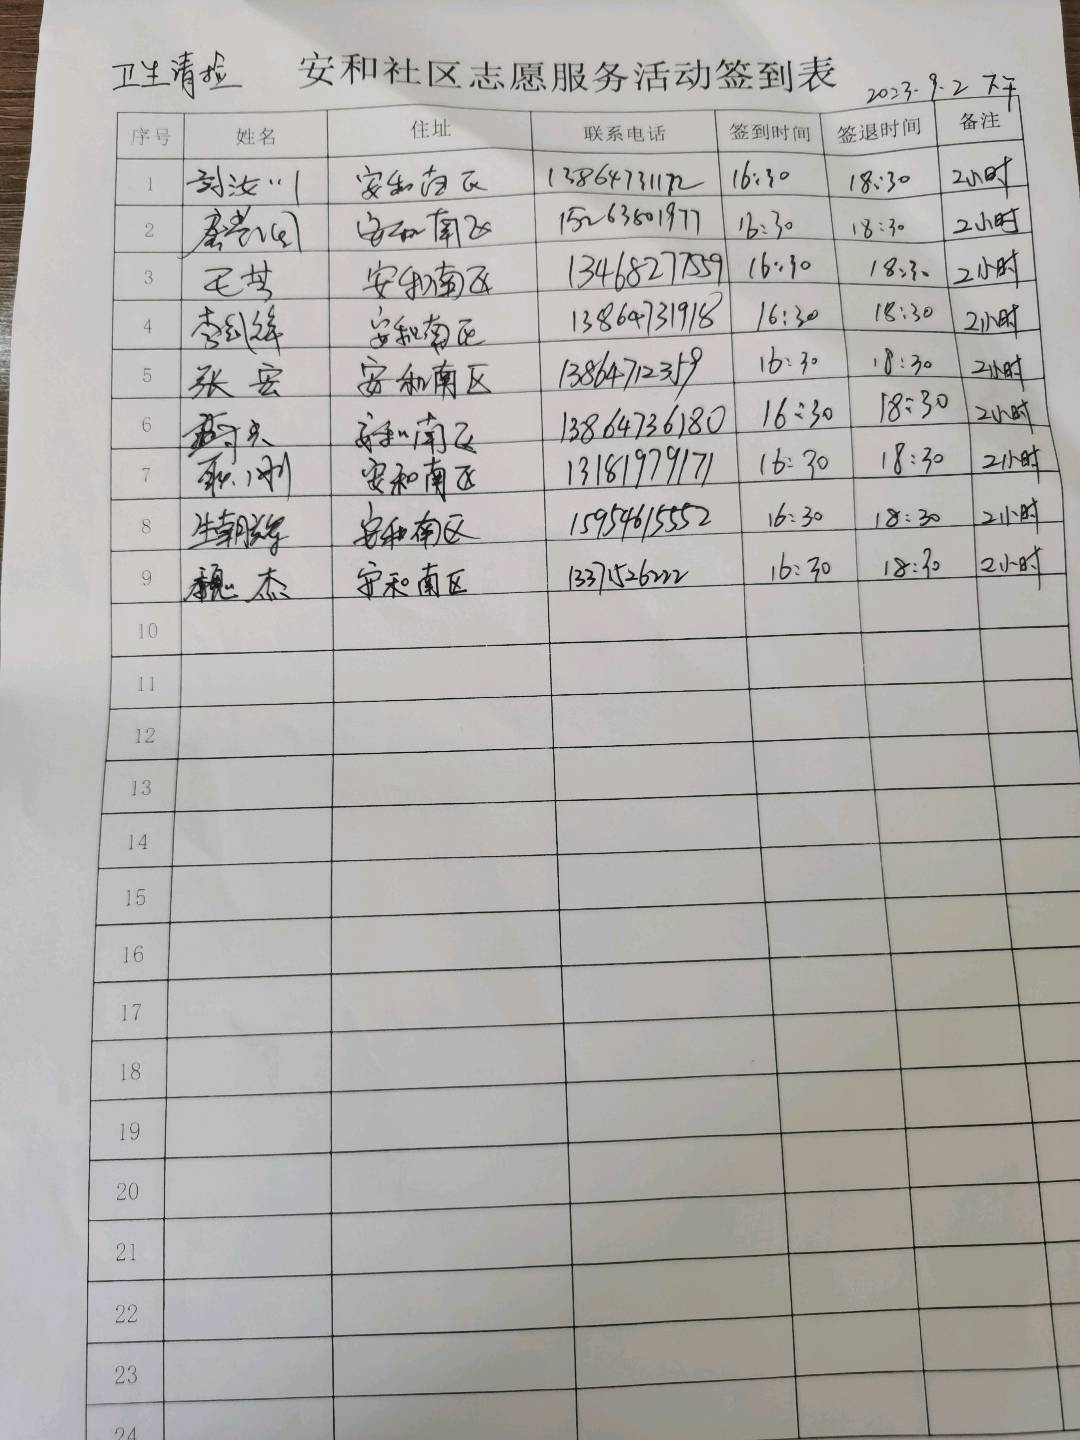 卫生清捡 安和社区志愿服务活动签到表 2023.9.2 下午
序号 姓名 住址 联系电话 签到时间 签退时间 备注
1 刘汝川 安和南区 13864731172 16:30 18:30 2小时
2 安和南区 15263801977 16:30 18:30 2小时
3 安和南区 13468277559 16:30 18:30 2小时
4 李剑锋 安和南区 13864731918 16:30 18:30 2小时
5 张安 安和南区 13864712359 16:30 18:30 2小时
6 安和南区 13864736180 16:30 18:30 2小时
7 安和南区 13181979171 16:30 18:30 2小时
8 生朝辉 安和南区 15954615552 16:30 18:30 2小时
9 魏杰 安和南区 13371526222 16:30 18:30 2小时
10
11
12
13
14
15
16
17
18
19
20
21
22
23
24